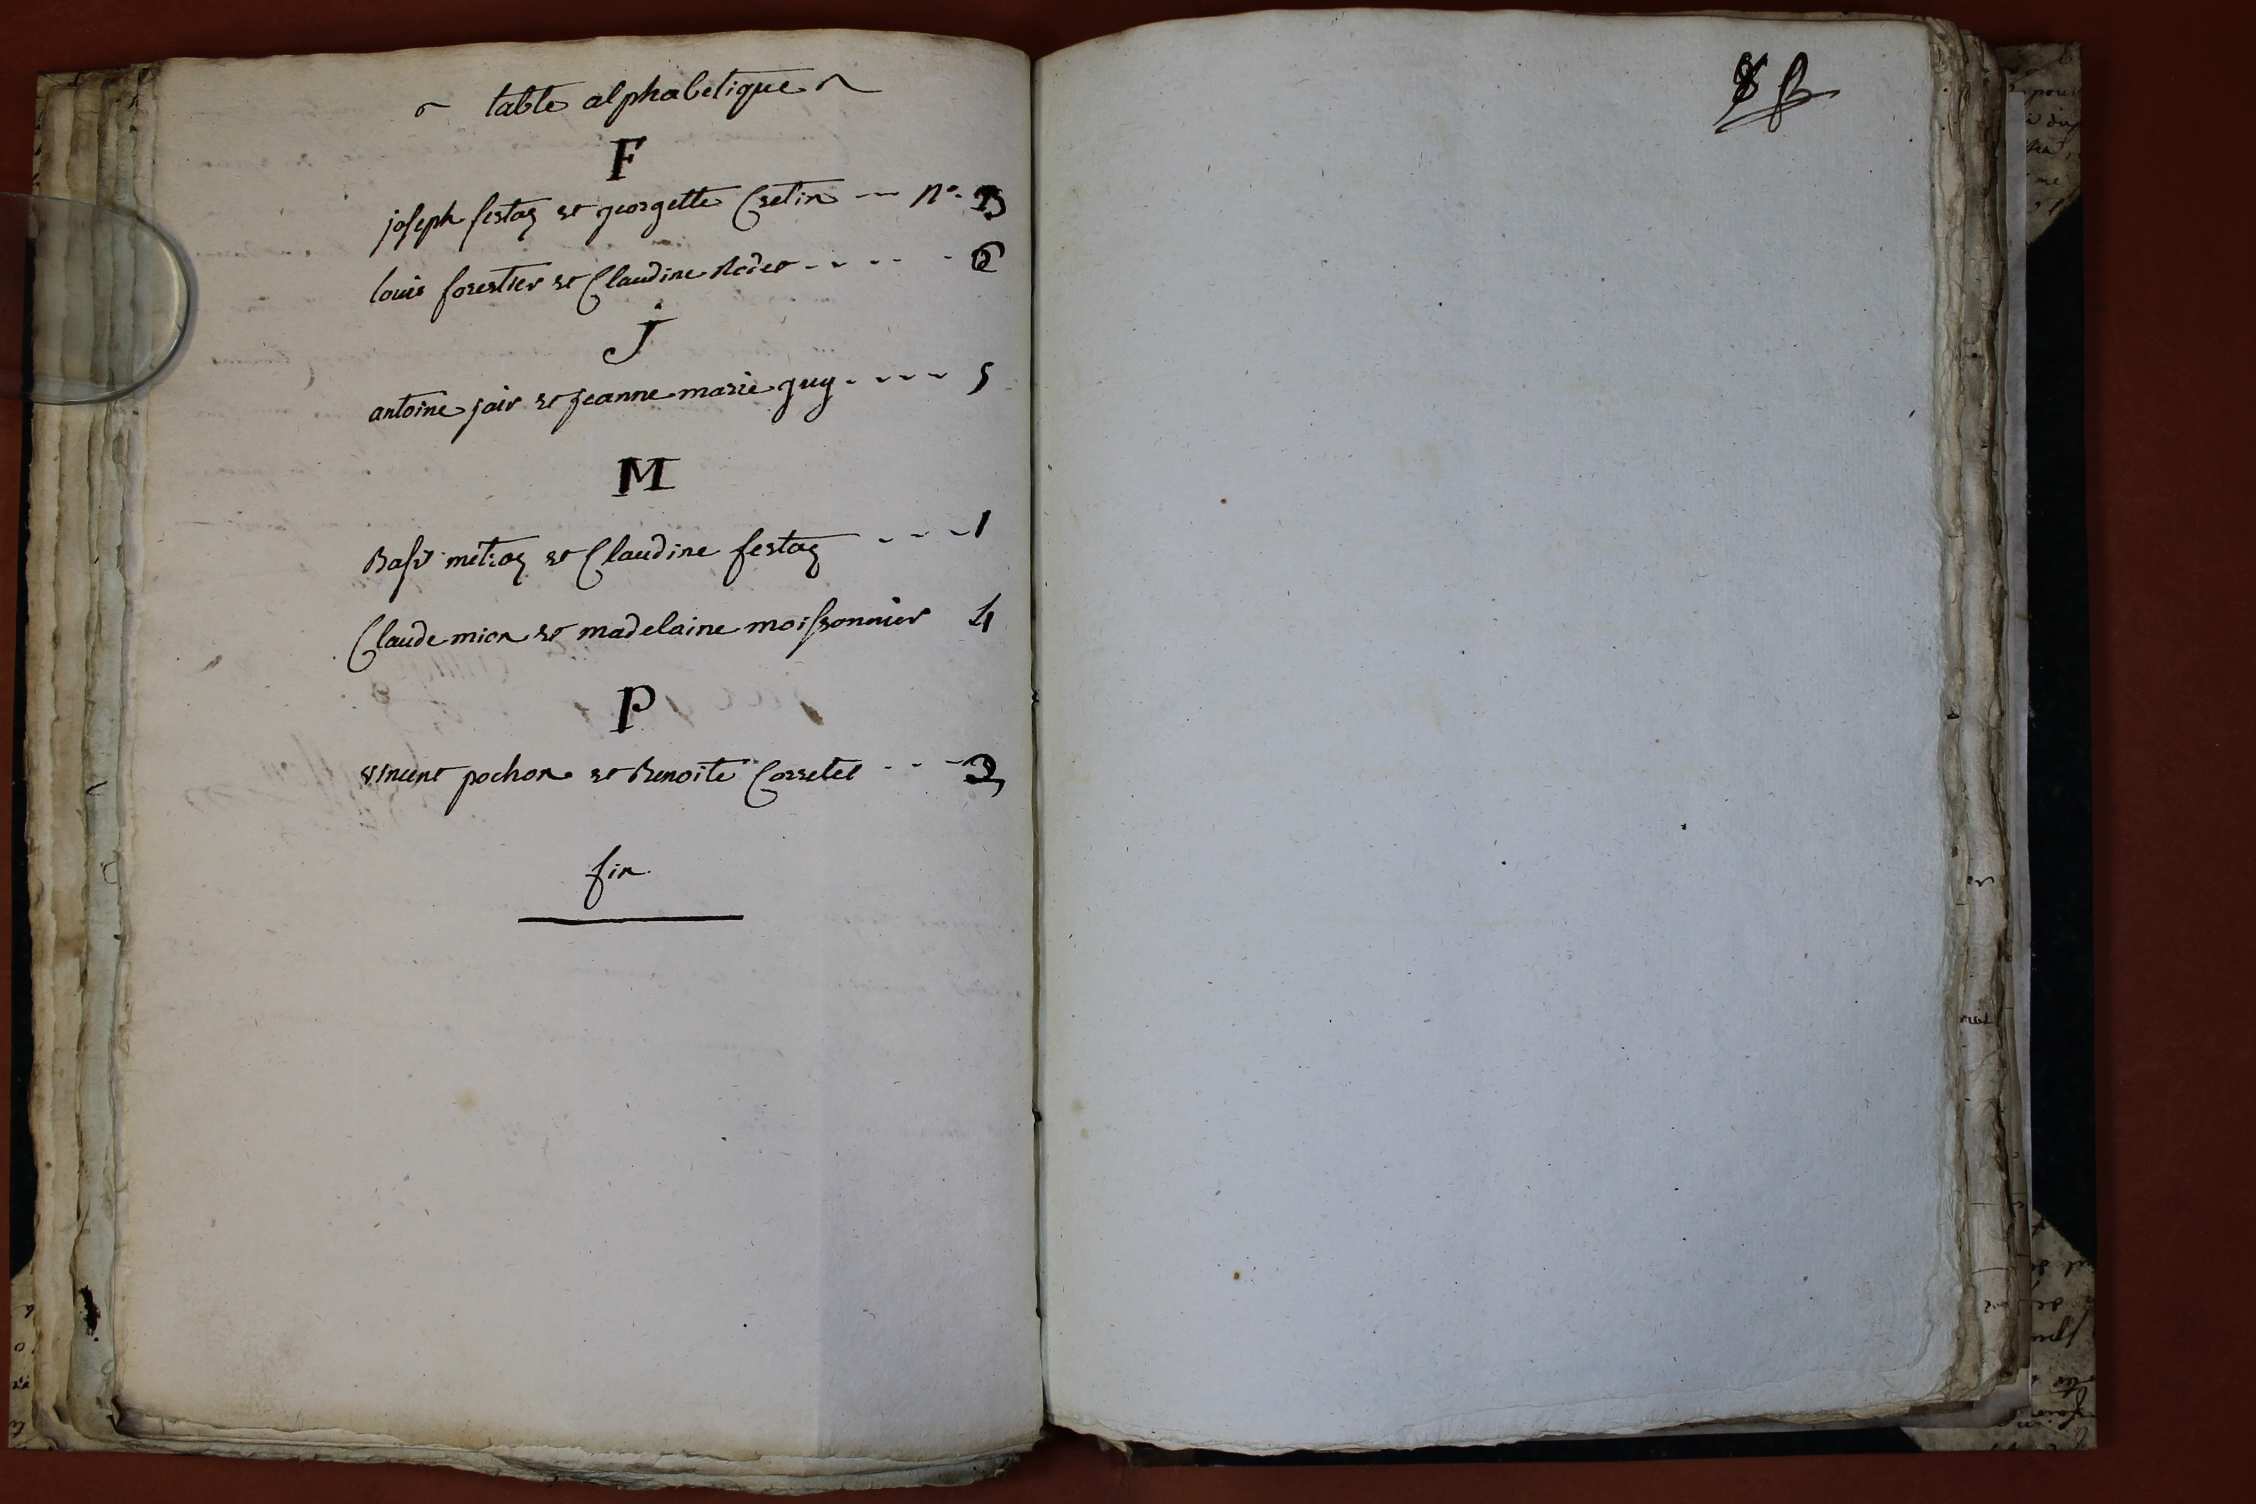 table alphabetique
F
joseph festaz et georgette Cretin --- n°. 3
louis forestier et Claudine Rodet - - - - - 6
j
antoine jair et jeanne marie guy - - - - 5
M
Bapt metraz et Claudine festaz - - - - 1
Claude mion et madelaine moissonnier 4
P
vincent pochon et Benoite Corretel - - - 2
fin.